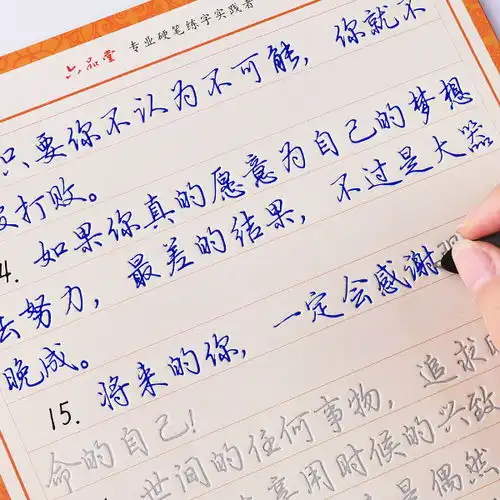 六品堂 专业硬笔练字实践者
只要你不认为不可能，你就不
打败。
4. 如果你真的愿意为自己的梦想
去努力，最差的结果，不过是大器
晚成。
15. 将来的你，一定会感谢
命的自己！
世间的任何事物，追求
享用时候的兴致
是偶然